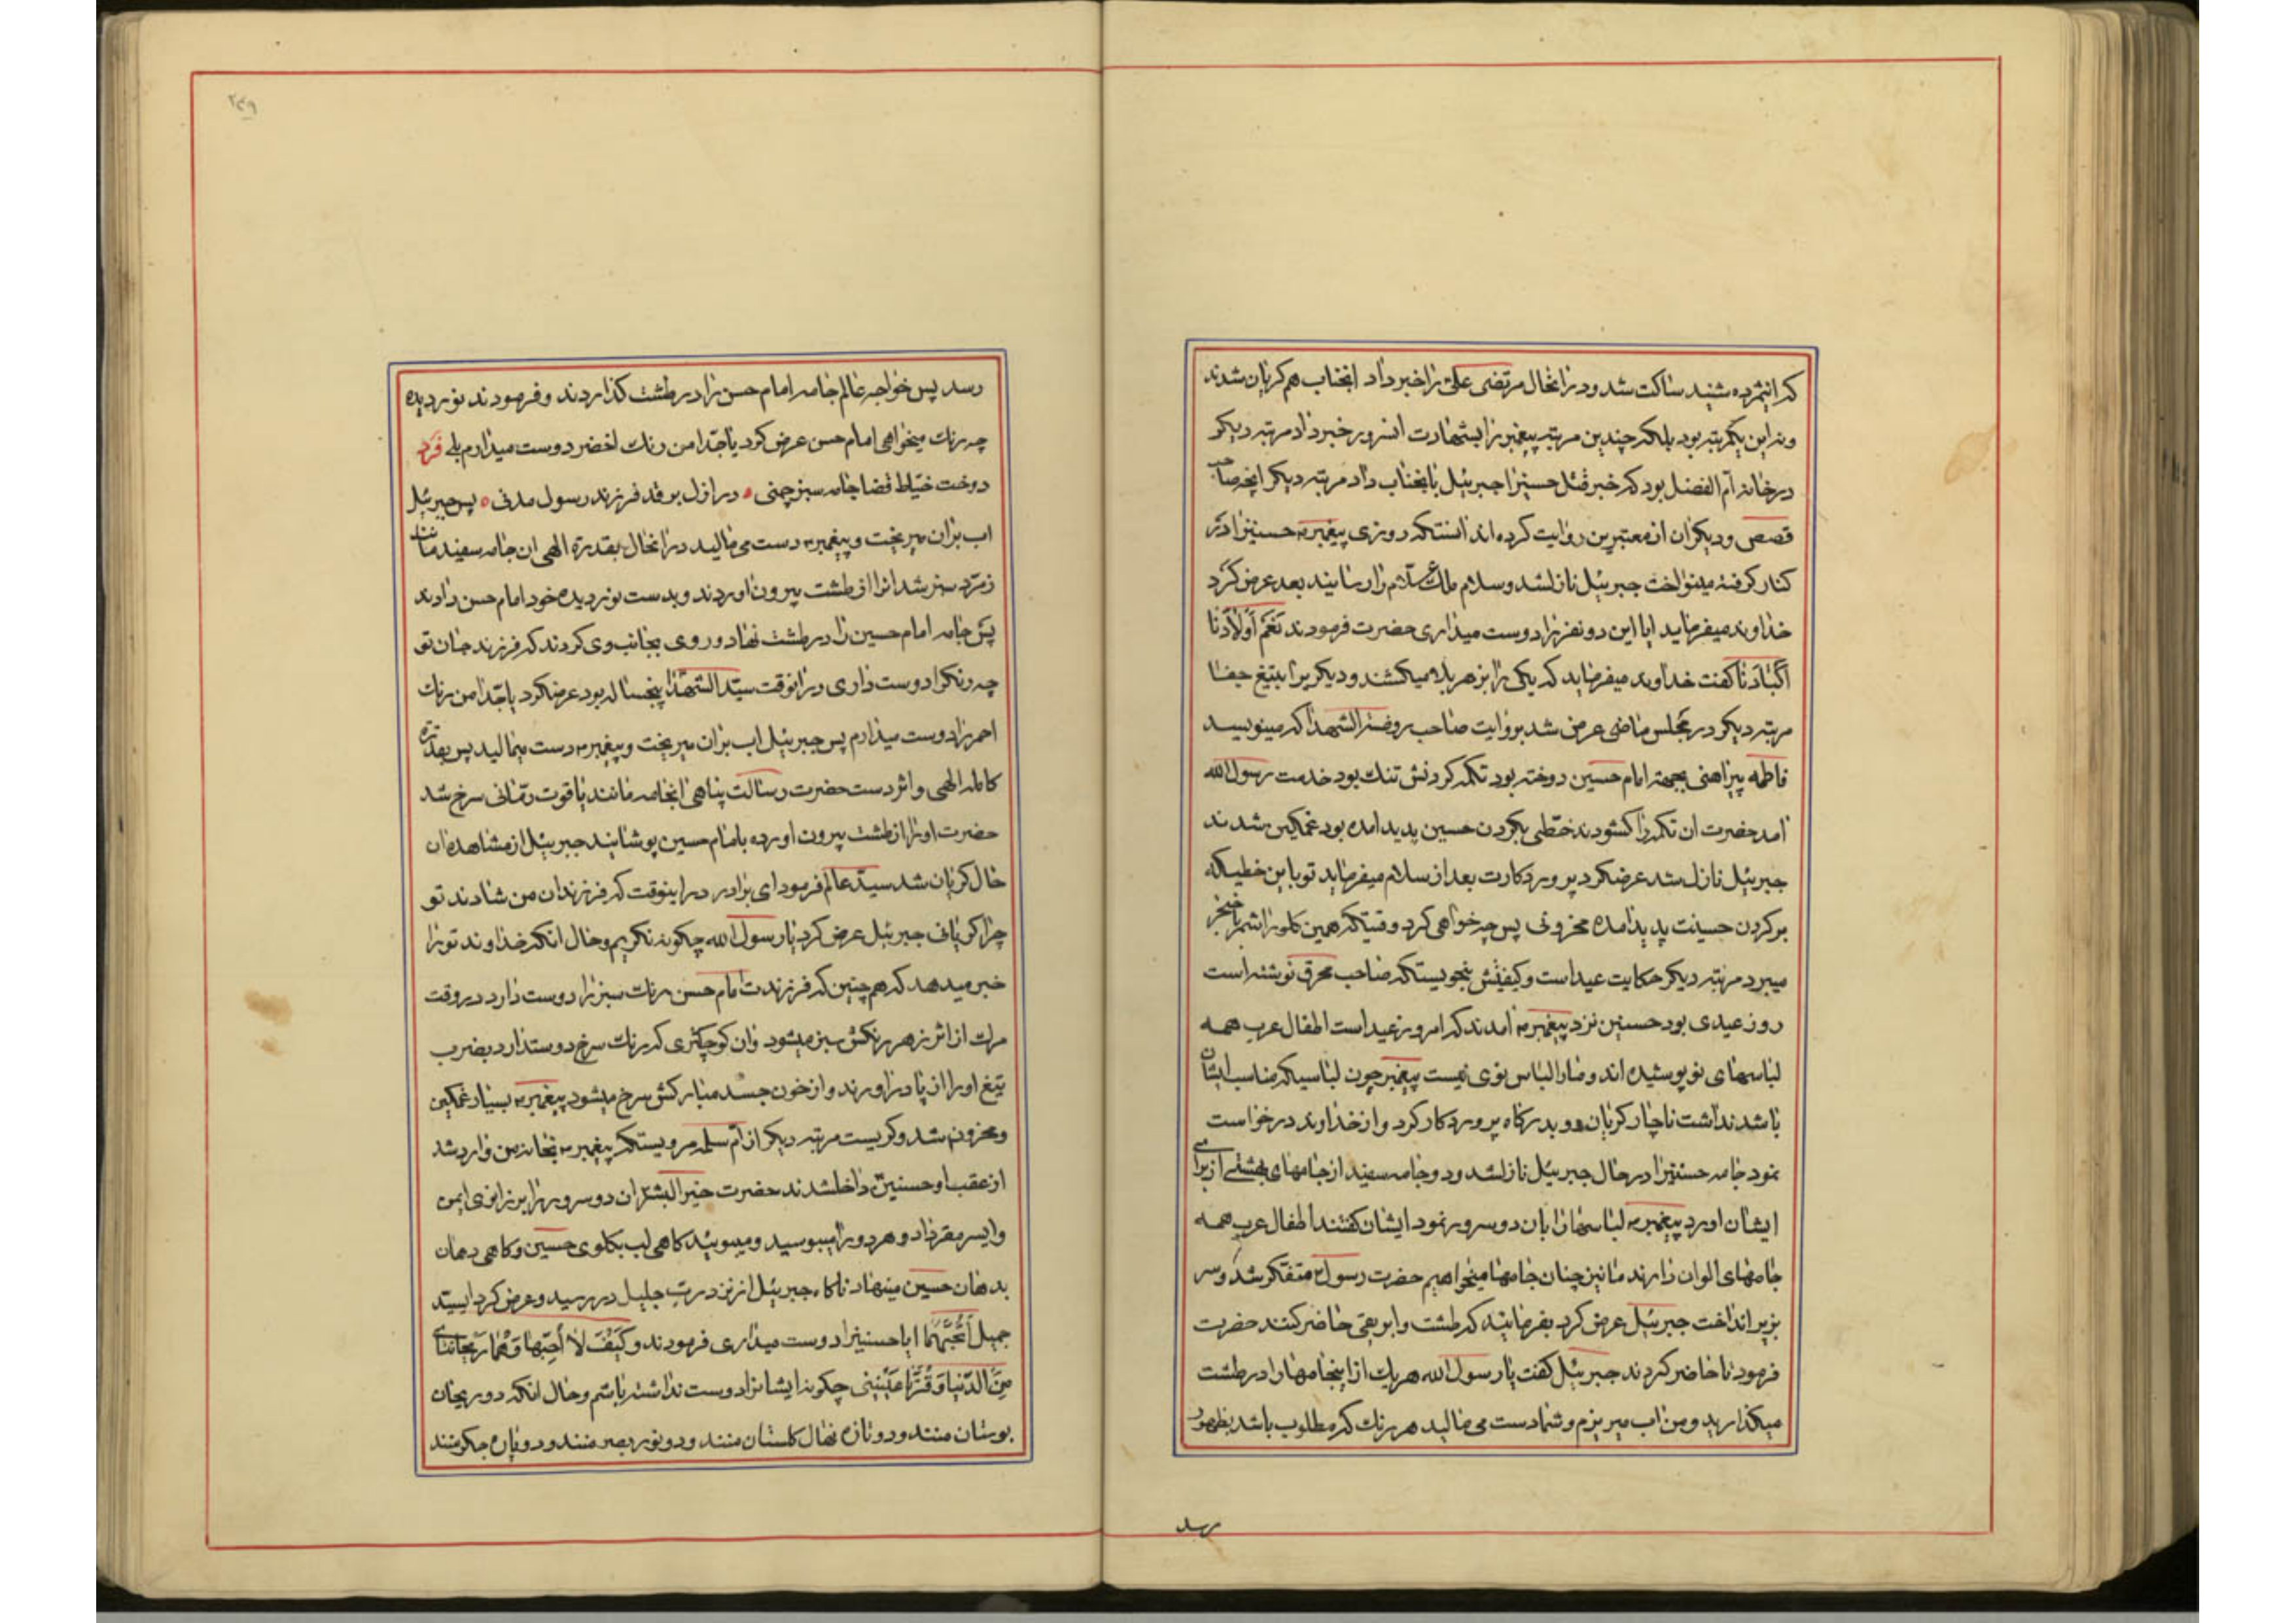 که اینمژده شنید ساکت شد و در انحال مرتضی علی را خبر داد انجناب هم کریان شدند
و نه این یکمرتبه بود بلکه چندین مرتبه پیغمبر را بشهادت انسرور خبر داد مرتبه دیکر
در خانه ام الفضل بود که خبر قتل حسین را جبرئیل بانجناب داد مرتبه دیکر انچه صاحب
قصص و دیکران از معتبرین روایت کرده اند انستکه روزی پیغمبر حسنین را در
کنار کرفته مینواخت جبرئیل نازلشد و سلام ملک علام را رسانید بعد عرض کرد
خداوند میفرماید ایا این دو نفر را دوست میداری حضرت فرمودند نعم اولادنا
اکبادنا کفت خداوند میفرماید که یکی را بزهر بلا میکشند و دیکریرا بتیغ جفا
مرتبه دیکر در مجلس ماضی عرض شد بروایت صاحب روضة الشهدا که مینویسد
فاطمه پیراهنی بجهة امام حسین دوخته بود تکمه کردنش تنک بود خدمت رسول الله
امد حضرت ان تکمه را کشودند خطی بکردن حسین پدید امده بود غمکین شدند
جبرئیل نازل شد عرضکرد پروردکارت بعد از سلام میفرماید تو باین خطیکه
بر کردن حسینت پدید امده محزونی پس چه خواهی کرد وقتیکه همین کلو را شمر با خنجر
میبرد مرتبه دیکر حکایت عید است و کیفیتش بنحویستکه صاحب محرق نوشته است
روز عیدی بود حسنین نزد پیغمبر امدند که امروز عید است اطفال عرب همه
لباسهای نو پوشیده اند و ما را لباس نوی نیست پیغمبر چون لباسیکه مناسب ایشان
باشد نداشت ناچار کریان رو بدرکاه پروردکار کرد و از خداوند درخواست
نمود جامه حسنین را در حال جبرئیل نازلشد و دو جامه سفید از جامهای بهشتی از برای
ایشان اورد پیغمبر لباسها را بان دو سرور نمود ایشان کفتند اطفال عرب همه
جامهای الوان دارند ما نیز چنان جامها میخواهیم حضرت رسول متفکر شد و سر
بزیر انداخت جبرئیل عرض کرد بفرمائید که طشت و ابریقی حاضر کنند حضرت
فرمود تا حاضر کردند جبرئیل کفت یا رسول الله هر یک از اینجامها را در طشت
میکذارید و من اب میریزم و شما دست می مالید هر رنک که مطلوب باشد بظهور
رسد
۲۳۹
رسد پس خواجه عالم جامه امام حسن را در طشت کذاردند و فرمودند نور دیده
چه رنک میخواهی امام حسن عرض کرد یا جدا من رنک اخضر دوست میدارم بلی فرد
دوخت خیاط قضا جامه سبز چمنی در ازل بر قد فرزند رسول مدنی پس جبرئیل
اب بران میریخت و پیغمبر دست می مالید در انحال بقدرة الهی ان جامه سفید مانند
زمرد سبز شد انرا از طشت بیرون اوردند و بدست نور دیده خود امام حسن دادند
پس جامه امام حسین را در طشت نهاد و روی بجانب وی کردند که فرزند جان تو
چه رنکرا دوست داری در انوقت سید الشهدا پنجساله بود عرضکرد یا جدا من رنک
احمر را دوست میدارم پس جبرئیل اب بران میریخت و پیغمبر دست میمالید پس بقدرة
کامله الهی و اثر دست حضرت رسالت پناهی انجامه مانند یاقوت رمانی سرخ شد
حضرت اونرا از طشت بیرون اورده بامام حسین پوشانید جبرئیل از مشاهده ان
حال کریان شد سید عالم فرمود ای برادر در اینوقت که فرزندان من شادند تو
چرا کریانی جبرئیل عرض کرد یا رسول الله چکونه نکریم و حال انکه خداوند تو را
خبر میدهد که همچنین که فرزندت امام حسن رنک سبز را دوست دارد در وقت
مرک از اثر زهر رنکش سبز میشود و ان کوچکتری که رنک سرخ دوستدارد بضرب
تیغ او را از پا دراورند و از خون جسد مبارکش سرخ میشود پیغمبر بسیار غمکین
و محزون شد و کریست مرتبه دیکر از ام سلمه مرویستکه پیغمبر بخانه من وارد شد
از عقب او حسنین داخلشدند حضرت خیر البشر ان دو سرور را بر زانوی ایمن
و ایسر مقر داد و هر دو را میبوسید و میبوئید کاهی لب بکلوی حسین و کاهی دهان
بدهان حسین مینهاد ناکاه جبرئیل از نزد رب جلیل در رسید و عرض کرد ای سید
جمیل اتحبهما ایا حسنین را دوست میداری فرمودند و کیف لا احبهما و هما ریحانتای
من الدنیا و قرتا عینی چکونه ایشانرا دوست نداشته باشم و حال انکه دو ریحان
بوستان منند و دو تازه نهال کلستان منند و دو نور بصر منند و دو پاره جکر منند